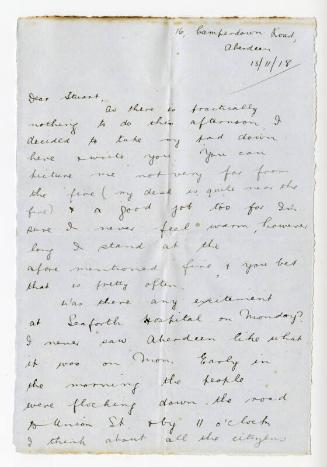 16, Camperdown Road,
Aberdeen
13/11/18
Dear Stuart,
As there is practically
nothing to do this afternoon I
decided to take my pad down
here & write you. You can
picture me not very far from
the fire (my desk is quite near the
fire) & a good job too for I'm
sure I never feel warm however
long I stand at the
afore mentioned fire & you bet
that is pretty often.
Was there any excitement
at Seaforth Hospital on Monday?
I never saw Aberdeen like what
it was on Mon. Early in
the morning the people
were flocking down the road
to Union St. & by 11 o'clock
I think about all the citizens